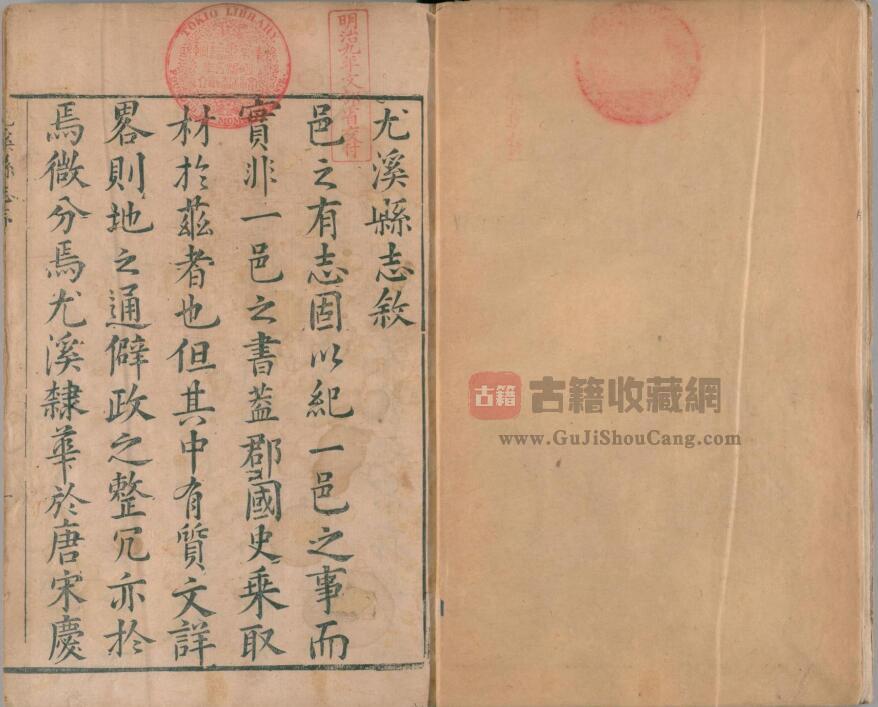 尤溪縣志敘
邑之有志固以紀一邑之事而
實非一邑之書葢郡國史乗取
材於茲者也但其中有質文詳
畧則地之通僻政之整冗亦於
焉微分焉尤溪隸華於唐宋慶
尤溪縣志序
TOKIO LIBRARY
明治九年文部省交付
古籍
古籍收藏網
www.GuJiShouCang.com